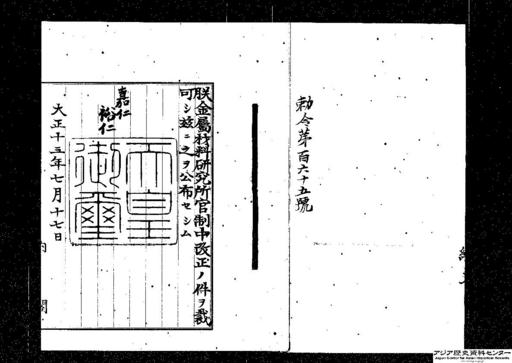 勅令第百六十五號
朕金屬材料研究所官制中改正ノ件ヲ裁
可シ茲ニ之ヲ公布セシム
嘉仁
裕仁
天皇
御璽
大正十三年七月十七日
内
閣
アジア歴史資料センター
Japan Center for Asian Historical Records